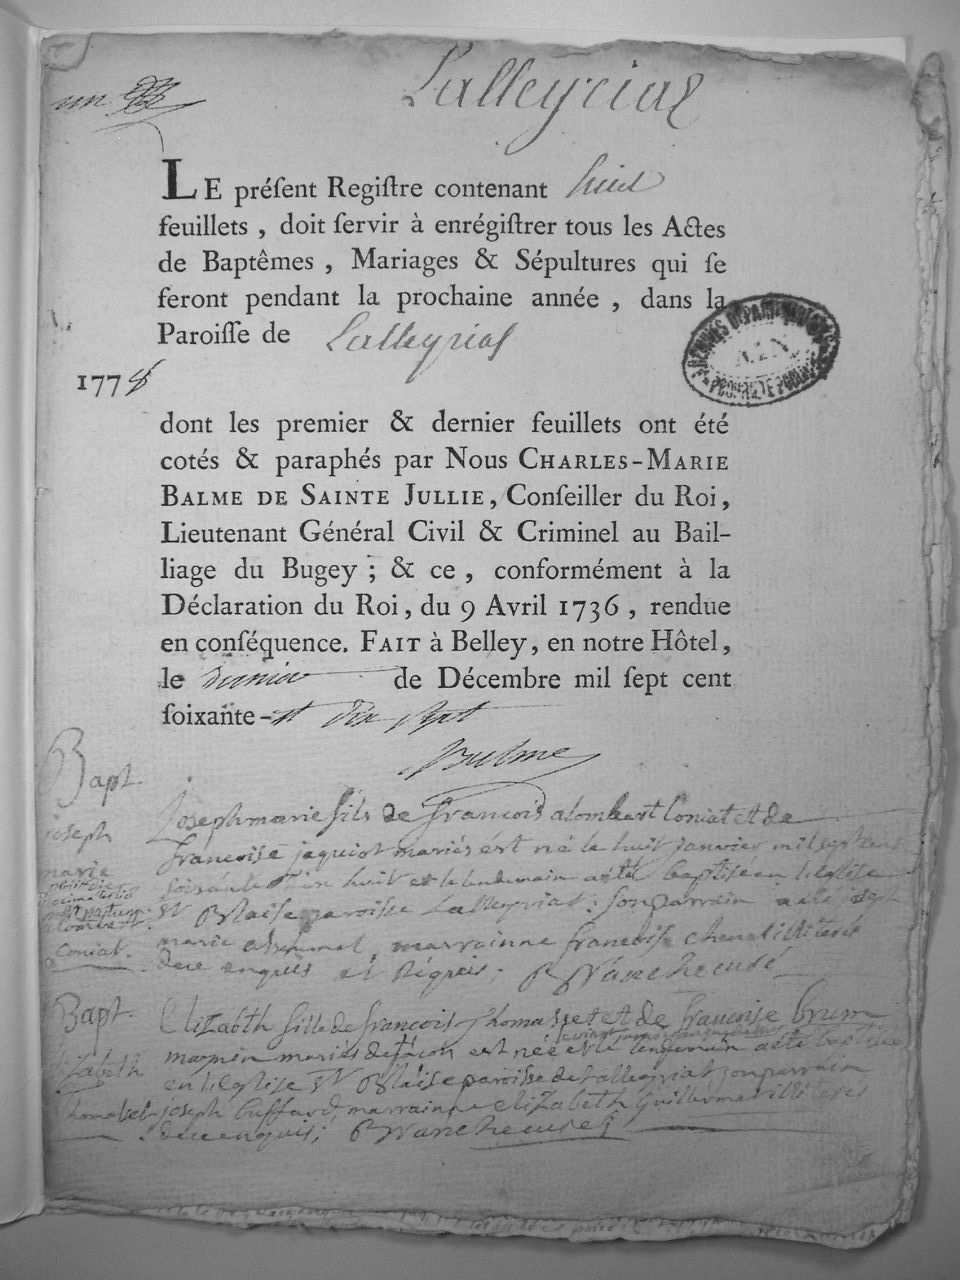 un
Lalleyriat
LE préſent Regiſtre contenant huit
feuillets, doit ſervir à enrégiſtrer tous les Actes
de Baptêmes, Mariages & Sépultures qui ſe
feront pendant la prochaine année, dans la
Paroiſſe de Lalleyriat
1778
dont les premier & dernier feuillets ont été
cotés & paraphés par Nous CHARLES-MARIE
BALME DE SAINTE JULLIE, Conſeiller du Roi,
Lieutenant Général Civil & Criminel au Bail-
liage du Bugey; & ce, conformément à la
Déclaration du Roi, du 9 Avril 1736, rendue
en conſéquence. FAIT à Belley, en notre Hôtel,
le dernier de Décembre mil ſept cent
ſoixante-et dix sept
Balme
Bapt.
joseph
marie
Coniat.
Joseph marie fils de francois alombert Coniat et de
francoise jaquiot mariés est né le huit janvier mil sept cent
soisante dix huit et le lendemain a eté baptisé en l'eglise
St Blaise paroisse Lalleyriat: son parrain a eté joseph
marie marrainne francoise illiterés
de ce enquis et Réquis;
Bapt.
Elizabeth
thomasset
Elizabeth fille de francois Thomasset et de francoise brun
mariés de est née et le lendemain a eté baptisée
en l'eglise St Blaise paroisse de Lalleyriat son parrain
joseph buffard marrainne elizabeth illiterés
de ce enquis;
ARCHIVES DÉPARTEMENTALES
AIN
PROPRIÉTÉ PUBLIQUE